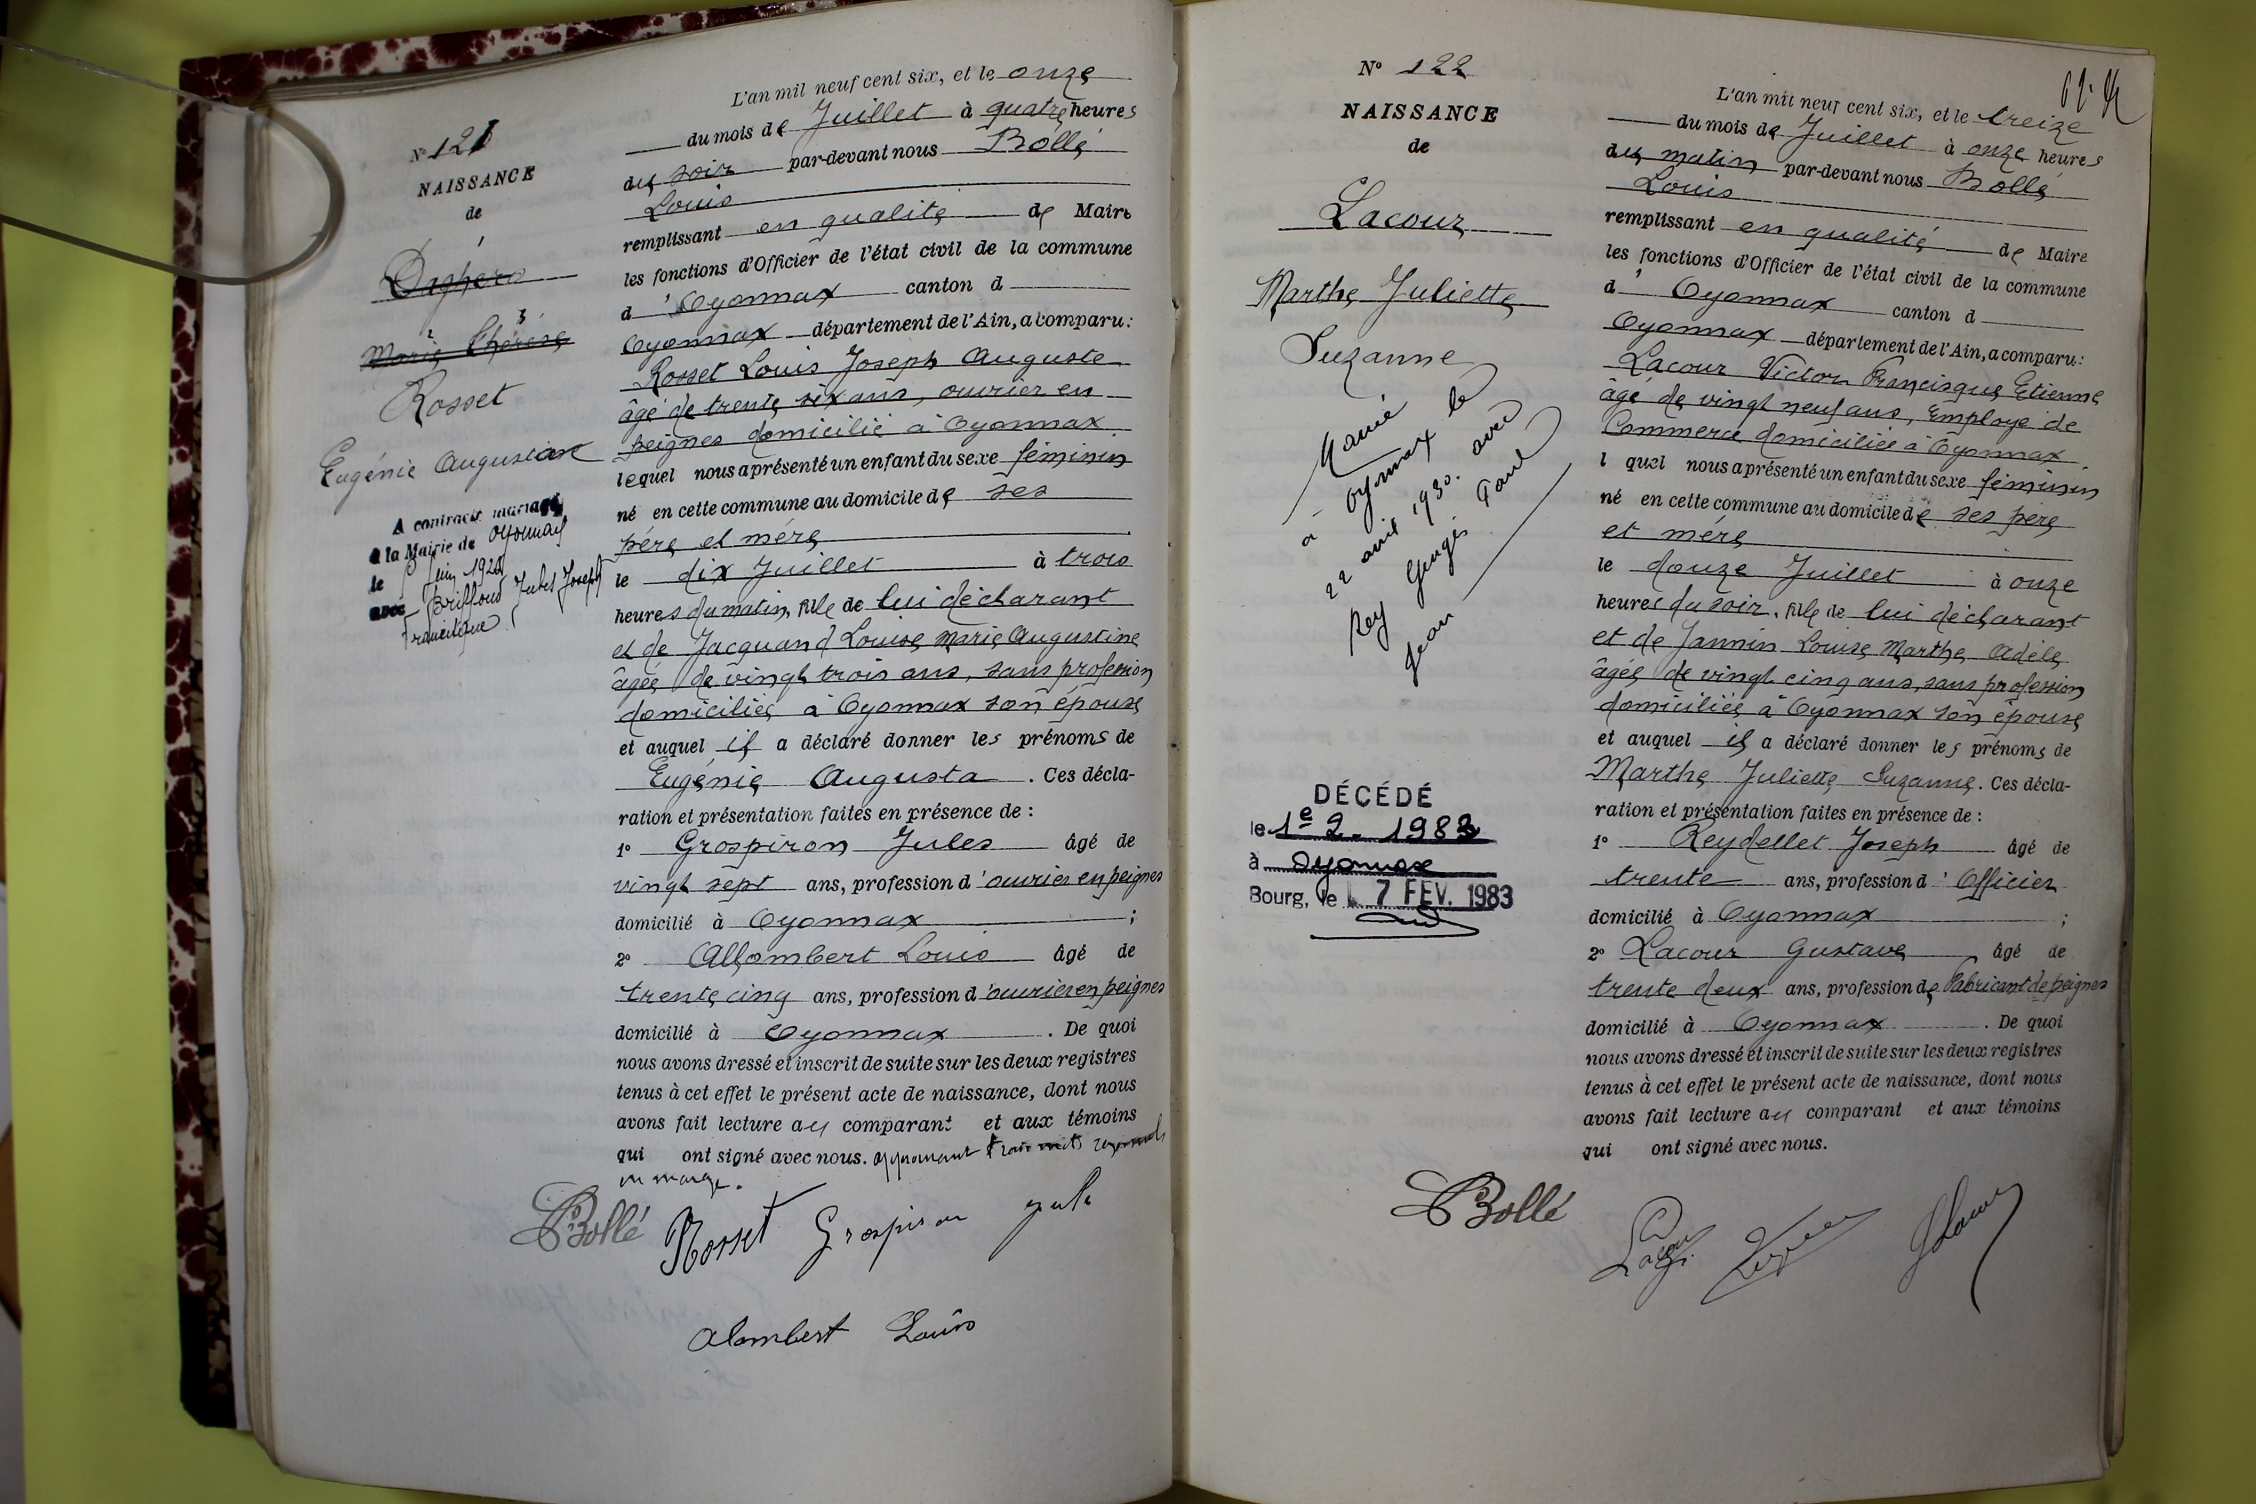 N° 121
NAISSANCE
de
Daghero
Marie Thérèse
Rosset
Eugénie
A contracté mariage
à la Mairie de Oyonnax
le Juin
avec Jules Joseph
L'an mil neuf cent six, et le onze
du mois de Juillet à quatre heures
du soir par-devant nous Bollé
Louis
remplissant en qualité de Maire
les fonctions d'Officier de l'état civil de la commune
d'Oyonnax canton d
Oyonnax département de l'Ain, a comparu:
Rosset Louis Joseph Auguste
âgé de trente six ans, ouvrier en
peignes domicilié à Oyonnax
lequel nous a présenté un enfant du sexe féminin
né en cette commune au domicile de ses
père et mère
le dix Juillet à trois
heures du matin, fille de lui déclarant
et de Jacquand Louise Marie Augustine
âgée de vingt trois ans, sans profession
domiciliée à Oyonnax son épouse
et auquel il a déclaré donner les prénoms de
Eugénie Augusta. Ces décla-
ration et présentation faites en présence de :
1° Grospiron Jules âgé de
vingt sept ans, profession d'ouvrier en peignes
domicilié à Oyonnax ;
2° Allombert Louis âgé de
trente cinq ans, profession d'ouvrier en peignes
domicilié à Oyonnax. De quoi
nous avons dressé et inscrit de suite sur les deux registres
tenus à cet effet le présent acte de naissance, dont nous
avons fait lecture au comparant et aux témoins
qui ont signé avec nous. approuvant trois mots
en marge.
Bollé Rosset Grospiron Jules
Alombert Louis
N° 122
NAISSANCE
de
Lacour
Marthe Juliette
Suzanne
Marié
à Oyonnax le
22 avril 1930. avec
Rey Georges Paul
Jean
DÉCÉDÉ
le 1e 2. 1983
à Oyonnax
Bourg, le 7 FEV. 1983
L'an mil neuf cent six, et le treize
du mois de Juillet à onze heures
du matin par-devant nous Bollé
Louis
remplissant en qualité de Maire
les fonctions d'Officier de l'état civil de la commune
d'Oyonnax canton d
Oyonnax département de l'Ain, a comparu:
Lacour Victor Francisque Etienne
âgé de vingt neuf ans, Employé de
Commerce domicilié à Oyonnax
l quel nous a présenté un enfant du sexe féminin
né en cette commune au domicile de ses père
et mère
le douze Juillet à onze
heures du soir, fille de lui déclarant
et de Jannin Louise Marthe Adèle
âgée de vingt cinq ans, sans profession
domiciliée à Oyonnax son épouse
et auquel il a déclaré donner les prénoms de
Marthe Juliette Suzanne. Ces décla-
ration et présentation faites en présence de :
1° Reydellet Joseph âgé de
trente ans, profession d'Officier
domicilié à Oyonnax ;
2° Lacour Gustave âgé de
trente deux ans, profession de Fabricant de peignes
domicilié à Oyonnax. De quoi
nous avons dressé et inscrit de suite sur les deux registres
tenus à cet effet le présent acte de naissance, dont nous
avons fait lecture au comparant et aux témoins
qui ont signé avec nous.
Bollé Lacour